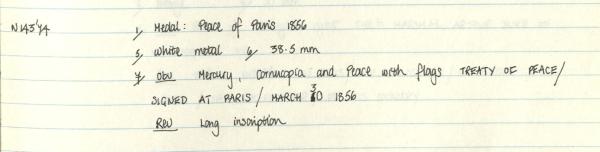 N143'74 1, Medal: Peace of Paris 1856
5, White metal 6, 38.5 mm
7, Obv Mercury, Cornucopia and Peace with flags TREATY OF PEACE/
SIGNED AT PARIS / MARCH 30 1856
Rev Long inscription